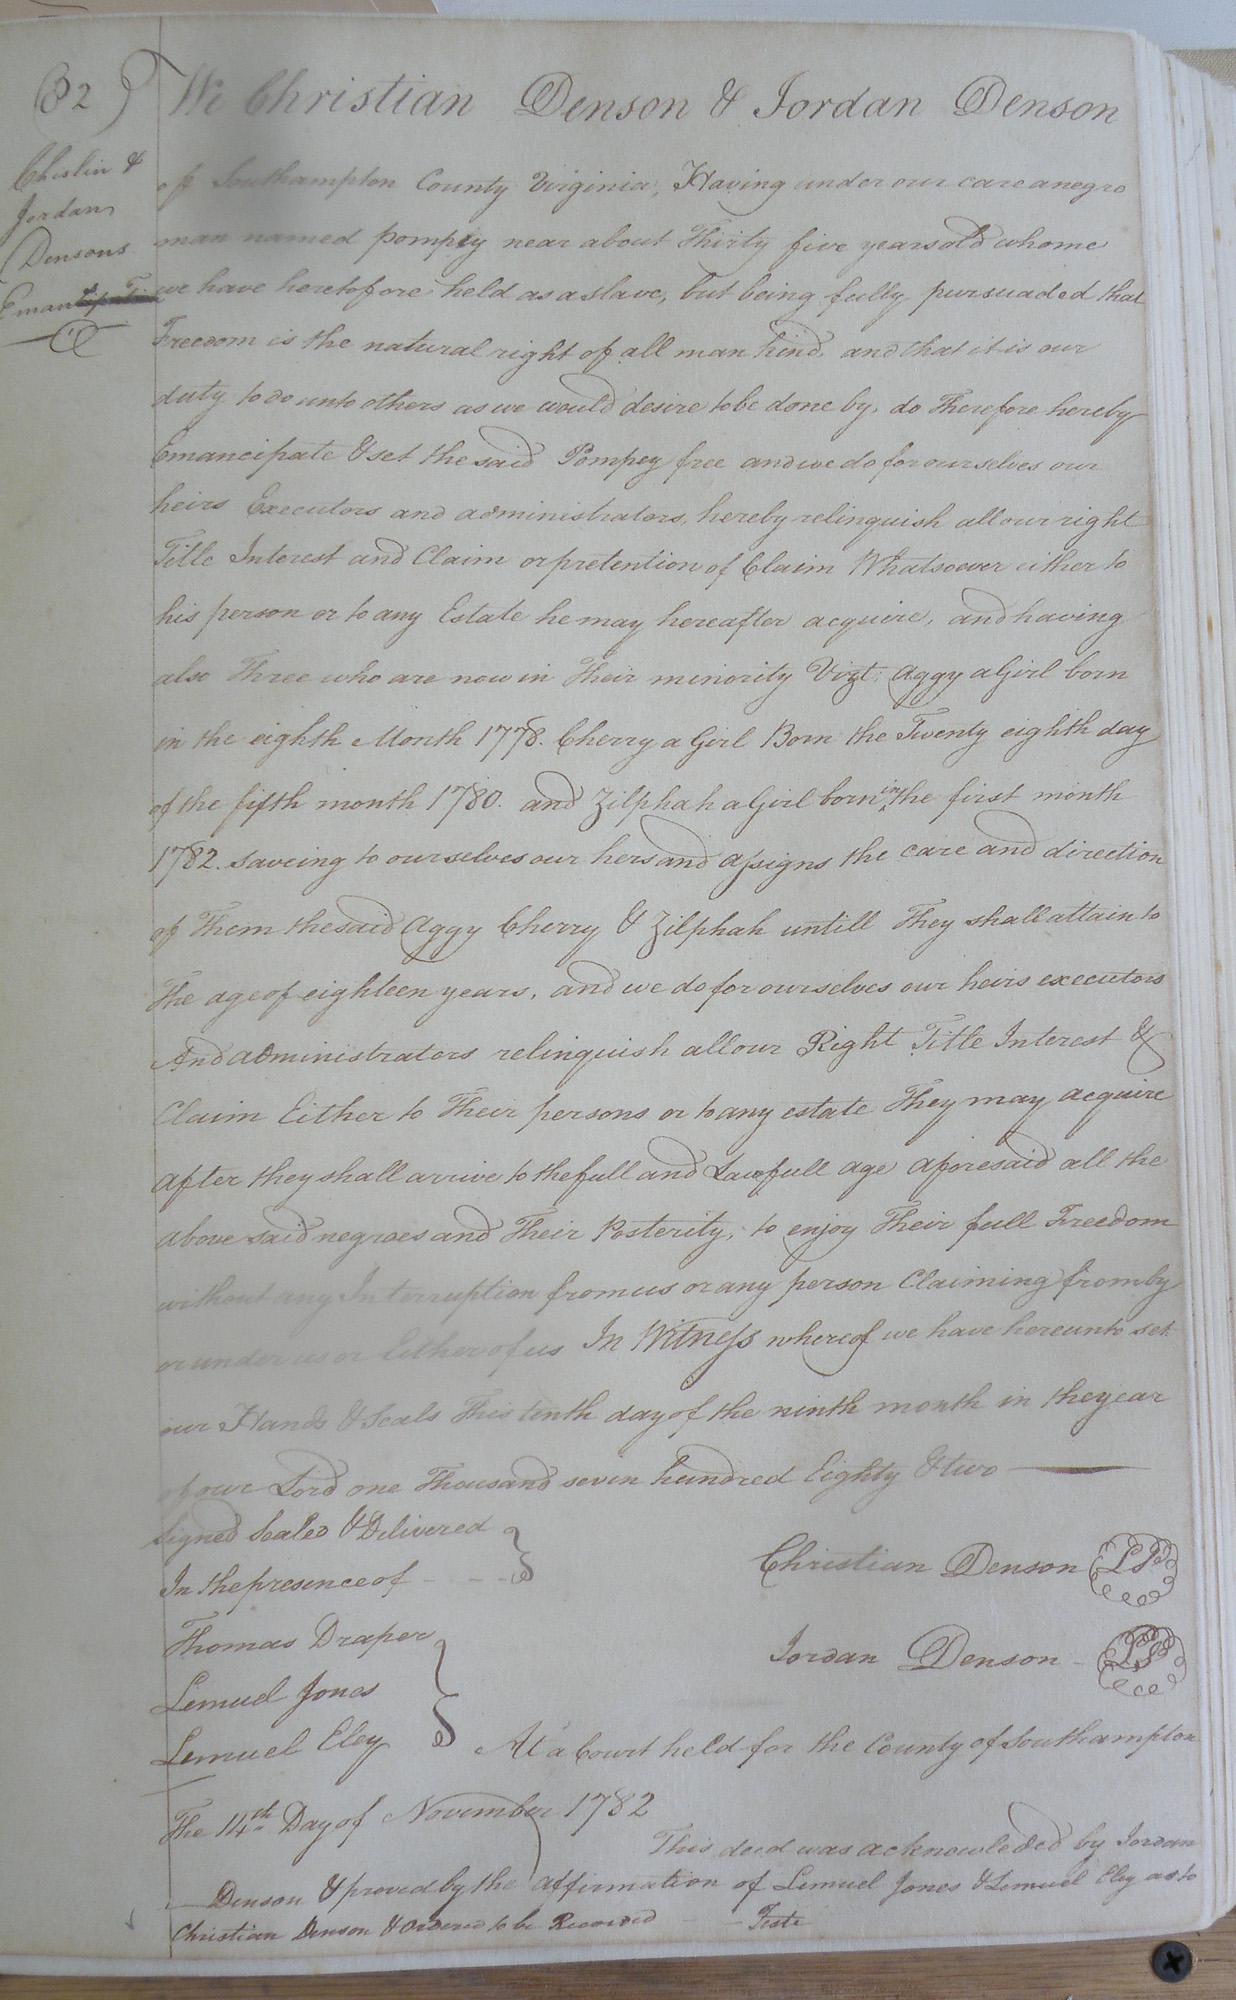 82
We Christian Denson & Jordan Denson
Chislin &
Jordan
Densons
of Southampton County Virginia, Having under our care a negro
man named pompey near about Thirty five years old whome
we have heretofore held as a slave, but being fully pursuaded that
Freedom is the natural right of all man kind, and that it is our
duty to do unto others as we would desire to be done by, do Therefore hereby
Emancipate & set the said Pompey free and we do for ourselves our
heirs Executors and administrators, hereby relinquish all our right
Title Interest and Claim or pretention of Claim Whatsoever either to
his person or to any Estate he may hereafter acquire, and having
also Three who are now in Their minority Vizt: Aggy a Girl born
in the eighth Month 1778. Cherry a Girl Born the Twenty eighth day
of the fifth month 1780. and Zilphah a Girl born in the first month
1782. saveing to ourselves our hers and assigns the care and direction
of Them the said Aggy Cherry & Zilphah untill They shall attain to
The age of eighteen years, and we do for ourselves our heirs executors
And administrators relinquish all our Right Title Interest &
Claim Either to Their persons or to any estate They may acquire
after they shall arrive to the full and Lawfull age aforesaid all the
above said negroes and Their Posterity, to enjoy Their full Freedom
without any Interruption from us or any person Claiming from by
or under us or Either of us In Witness whereof we have hereunto set
our Hands & Seals This tenth day of the ninth month in the year
of our Lord one Thousand seven hundred Eighty & two
Signed Sealed & Delivered
In the presence of
Christian Denson LS
Thomas Draper
Jordan Denson LS
Lemuel Jones
Lemuel Eley
At a Court held for the County of Southampton
The 14th Day of November 1782
This deed was acknowleded by Jordan
Denson & proved by the affirmation of Lemuel Jones & Lemuel Eley as to
Christian Denson & ordered to be Recorded Teste